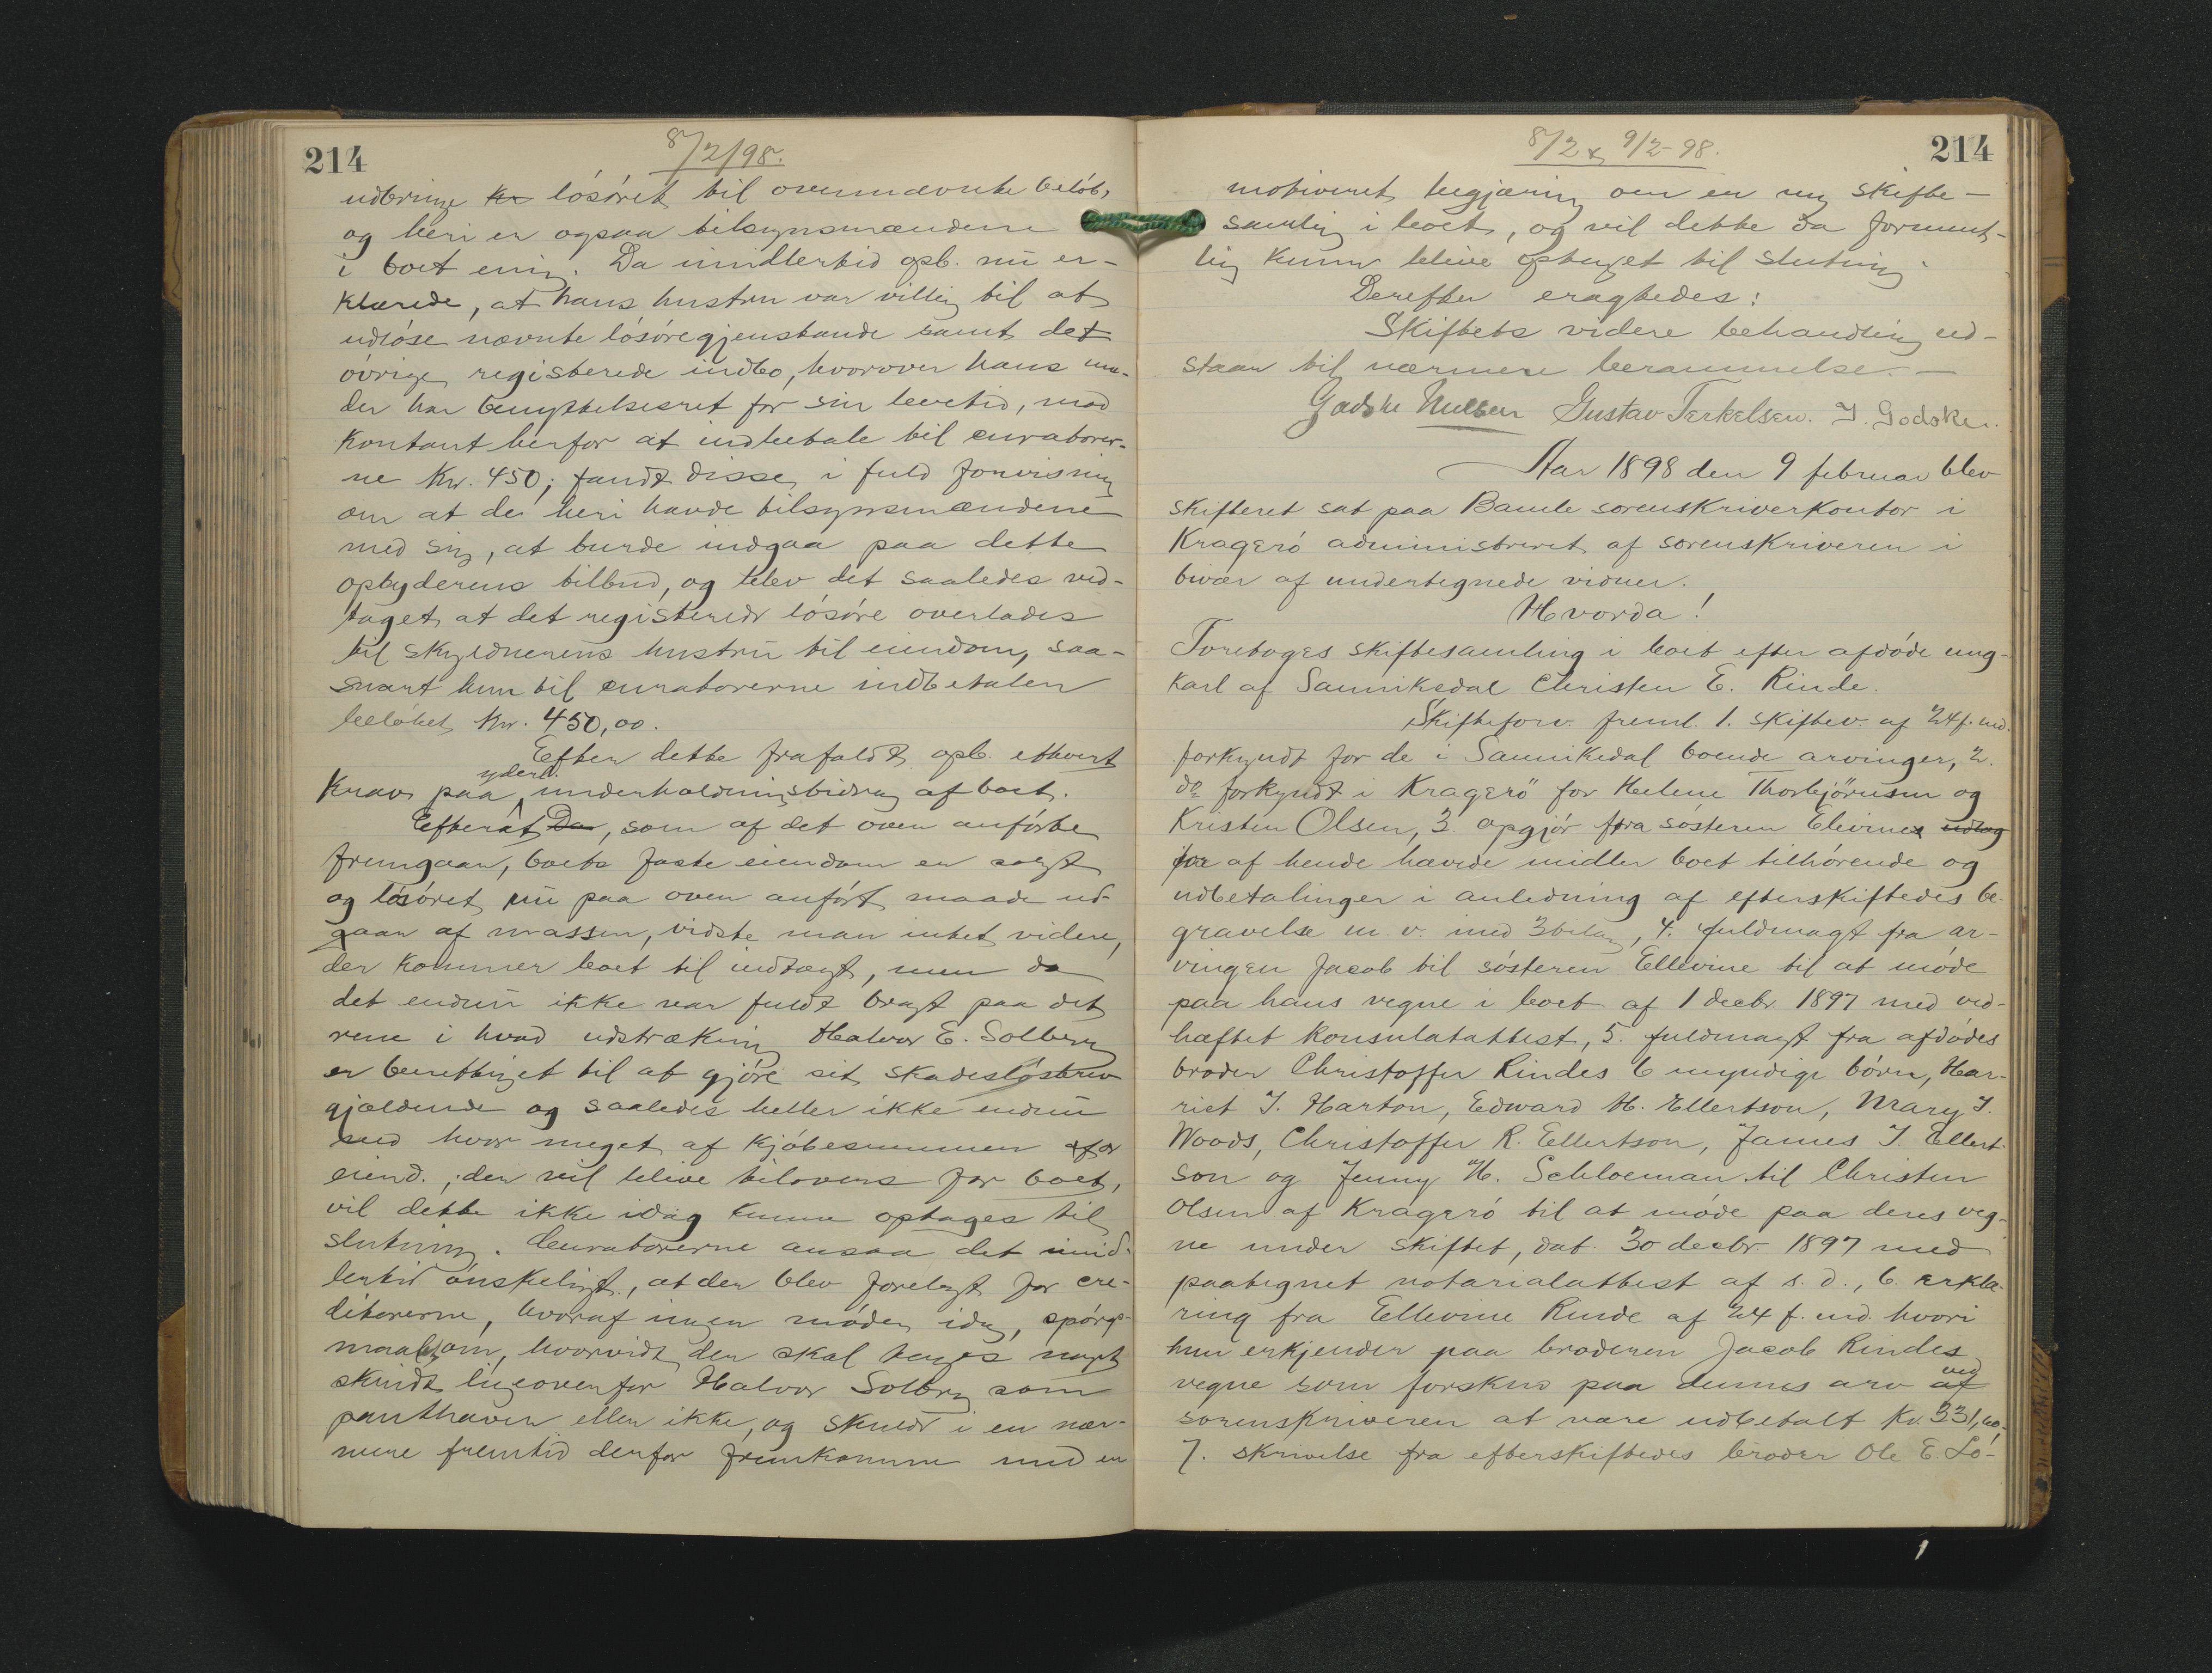 214
8/2/98.
udbringe kr løsøret til ovennævnte beløb,
og heri er ogsaa tilsynsmændene
i boet enig. Da imidlertid opb. nu er-
klærede, at hans hustru var villig til at
udløse nævnte løsøregjenstande samt det
øvrige registerede indbo, hvorover hans mo-
der har benyttelsesret for sin levetid, mod
kontant herfor at indbetale til curatorer-
ne Kr. 450; fandt disse, i fuld forvisning
om at de heri havde tilsynsmændene
med sig, at burde indgaa paa dette
opbyderens tilbud, og blev det saaledes ved-
taget at det registerede løsøre overlades
til skyldnerens hustru til eiendom, saa-
snart hun til curatorerne indbetaler
beløbet Kr. 450,00.
Efter dette frafaldt opb. ethvert
krav paa yderl. underholdningsbidrag af boet.
Efterat Da, som af det oven anførte
fremgaar, boets faste eiendom er solgt
og løsøret nu paa oven anført maade ud-
gaar af massen, vidste man intet videre,
der kommer boet til indtægt, men da
det endnu ikke var fuldt bragt paa det
rene i hvad udstrækning Halvor E. Solberg
er berettiget til at gjøre sit skadesløsbrev
gjældende og saaledes heller ikke endnu
hvor meget af kjøbesummen for
eiend., der vil blive tilovers for boet,
vil dette ikke idag kunne optages til
slutning. Curatorerne ansaa det imid-
lertid ønskeligt, at der blev forelagt for cre-
ditorerne, hvoraf ingen møder idag, spørgs-
maal om, hvorvidt der skal tages
skridt ligeoverfor Halvor Solberg som
panthaver eller ikke, og skulde i en nær-
mere fremtid derfor fremkomme med en
8/2 & 9/2-98.
214
motiveret begjæring om en ny skifte-
samling i boet, og vil dette da forment-
lig kunne blive optaget til slutning.
Derefter eragtedes:
Skiftets videre behandling ud-
staar til nærmere berammelse. —
Godske Nielsen Gustav Terkelsen. J. Godske.
Aar 1898 den 9 februar blev
skifteret sat paa Bamle sorenskriverkontor i
Kragerø administreret af sorenskriveren i
bivær af undertegnede vidner.
Hvorda!
Foretoges skiftesamling i boet efter afdøde ung-
karl af Sannikedal Christen E. Rinde.
Skifteforv. freml. 1. skiftev. af 24 f. md.
forkyndt for de i Sannikedal boende arvinger, 2.
do forkyndt i Kragerö for Helene Thorbjörnsen og
Kristen Olsen, 3. opgjør fra søsteren Elevine udlag
for af hende hævede midler boet tilhørende og
udbetalinger i anledning af efterskiftedes be-
gravelse m. v. med 3 bilag, 4. fuldmagt fra ar-
vingen Jacob til søsteren Ellevine til at møde
paa hans vegne i boet af 1 decbr. 1897 med ved-
hæftet konsulatattest, 5. fuldmagt fra afdødes
broder Christoffer Rindes 6 myndige børn, Har-
riet J. Harton, Edward H. Ellertson, Mary J.
Woods, Christoffer R. Ellertson, James J. Ellert-
son og Jenny H. Schloeman til Christen
Olsen af Kragerø til at møde paa deres veg-
ne under skiftet, dat. 30 decbr 1897 med
paategnet notarialattest af s. d., 6. erklæ-
ring fra Ellevine Rinde af 24 f. md. hvori
hun erkjender paa broderen Jacob Rindes
vegne som forskud paa dennes arv af ved
sorenskriveren at være udbetalt Kr. 331,60.
7. skrivelse fra efterskiftedes broder Ole E. Lø-